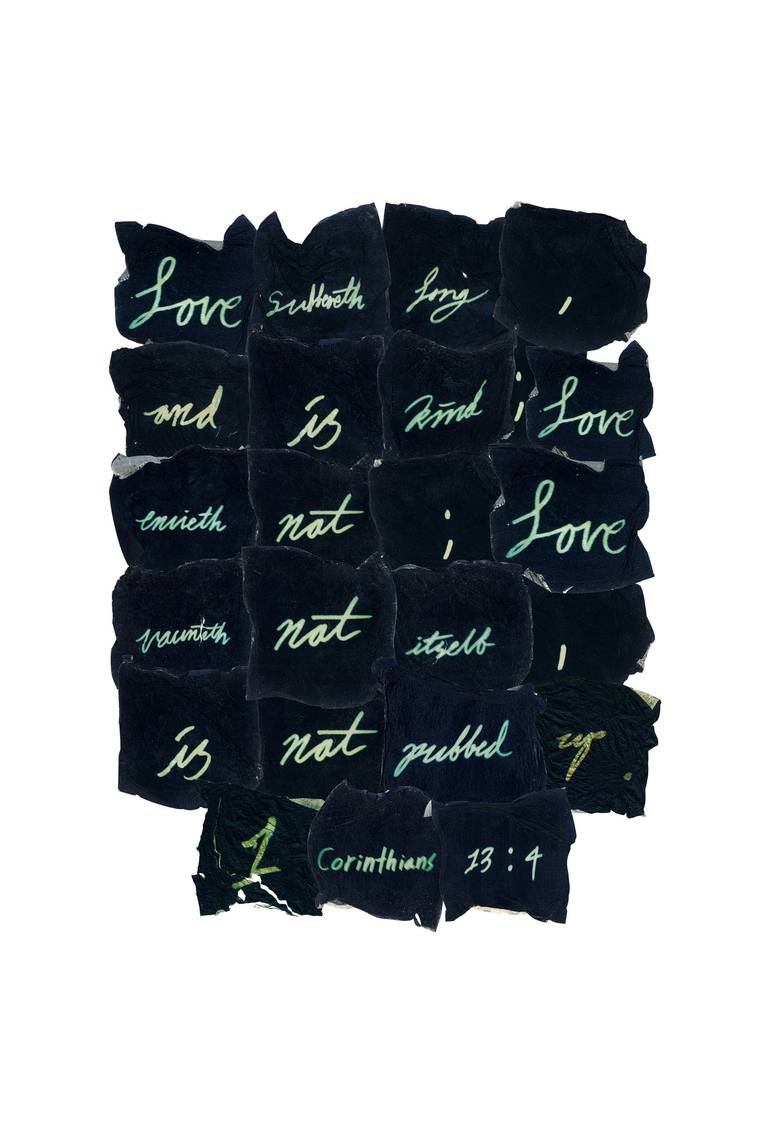 Love suffereth long ,
and is kind ; Love
envieth not ; Love
vaunteth not itself ,
is not puffed up .
1 Corinthians 13 : 4